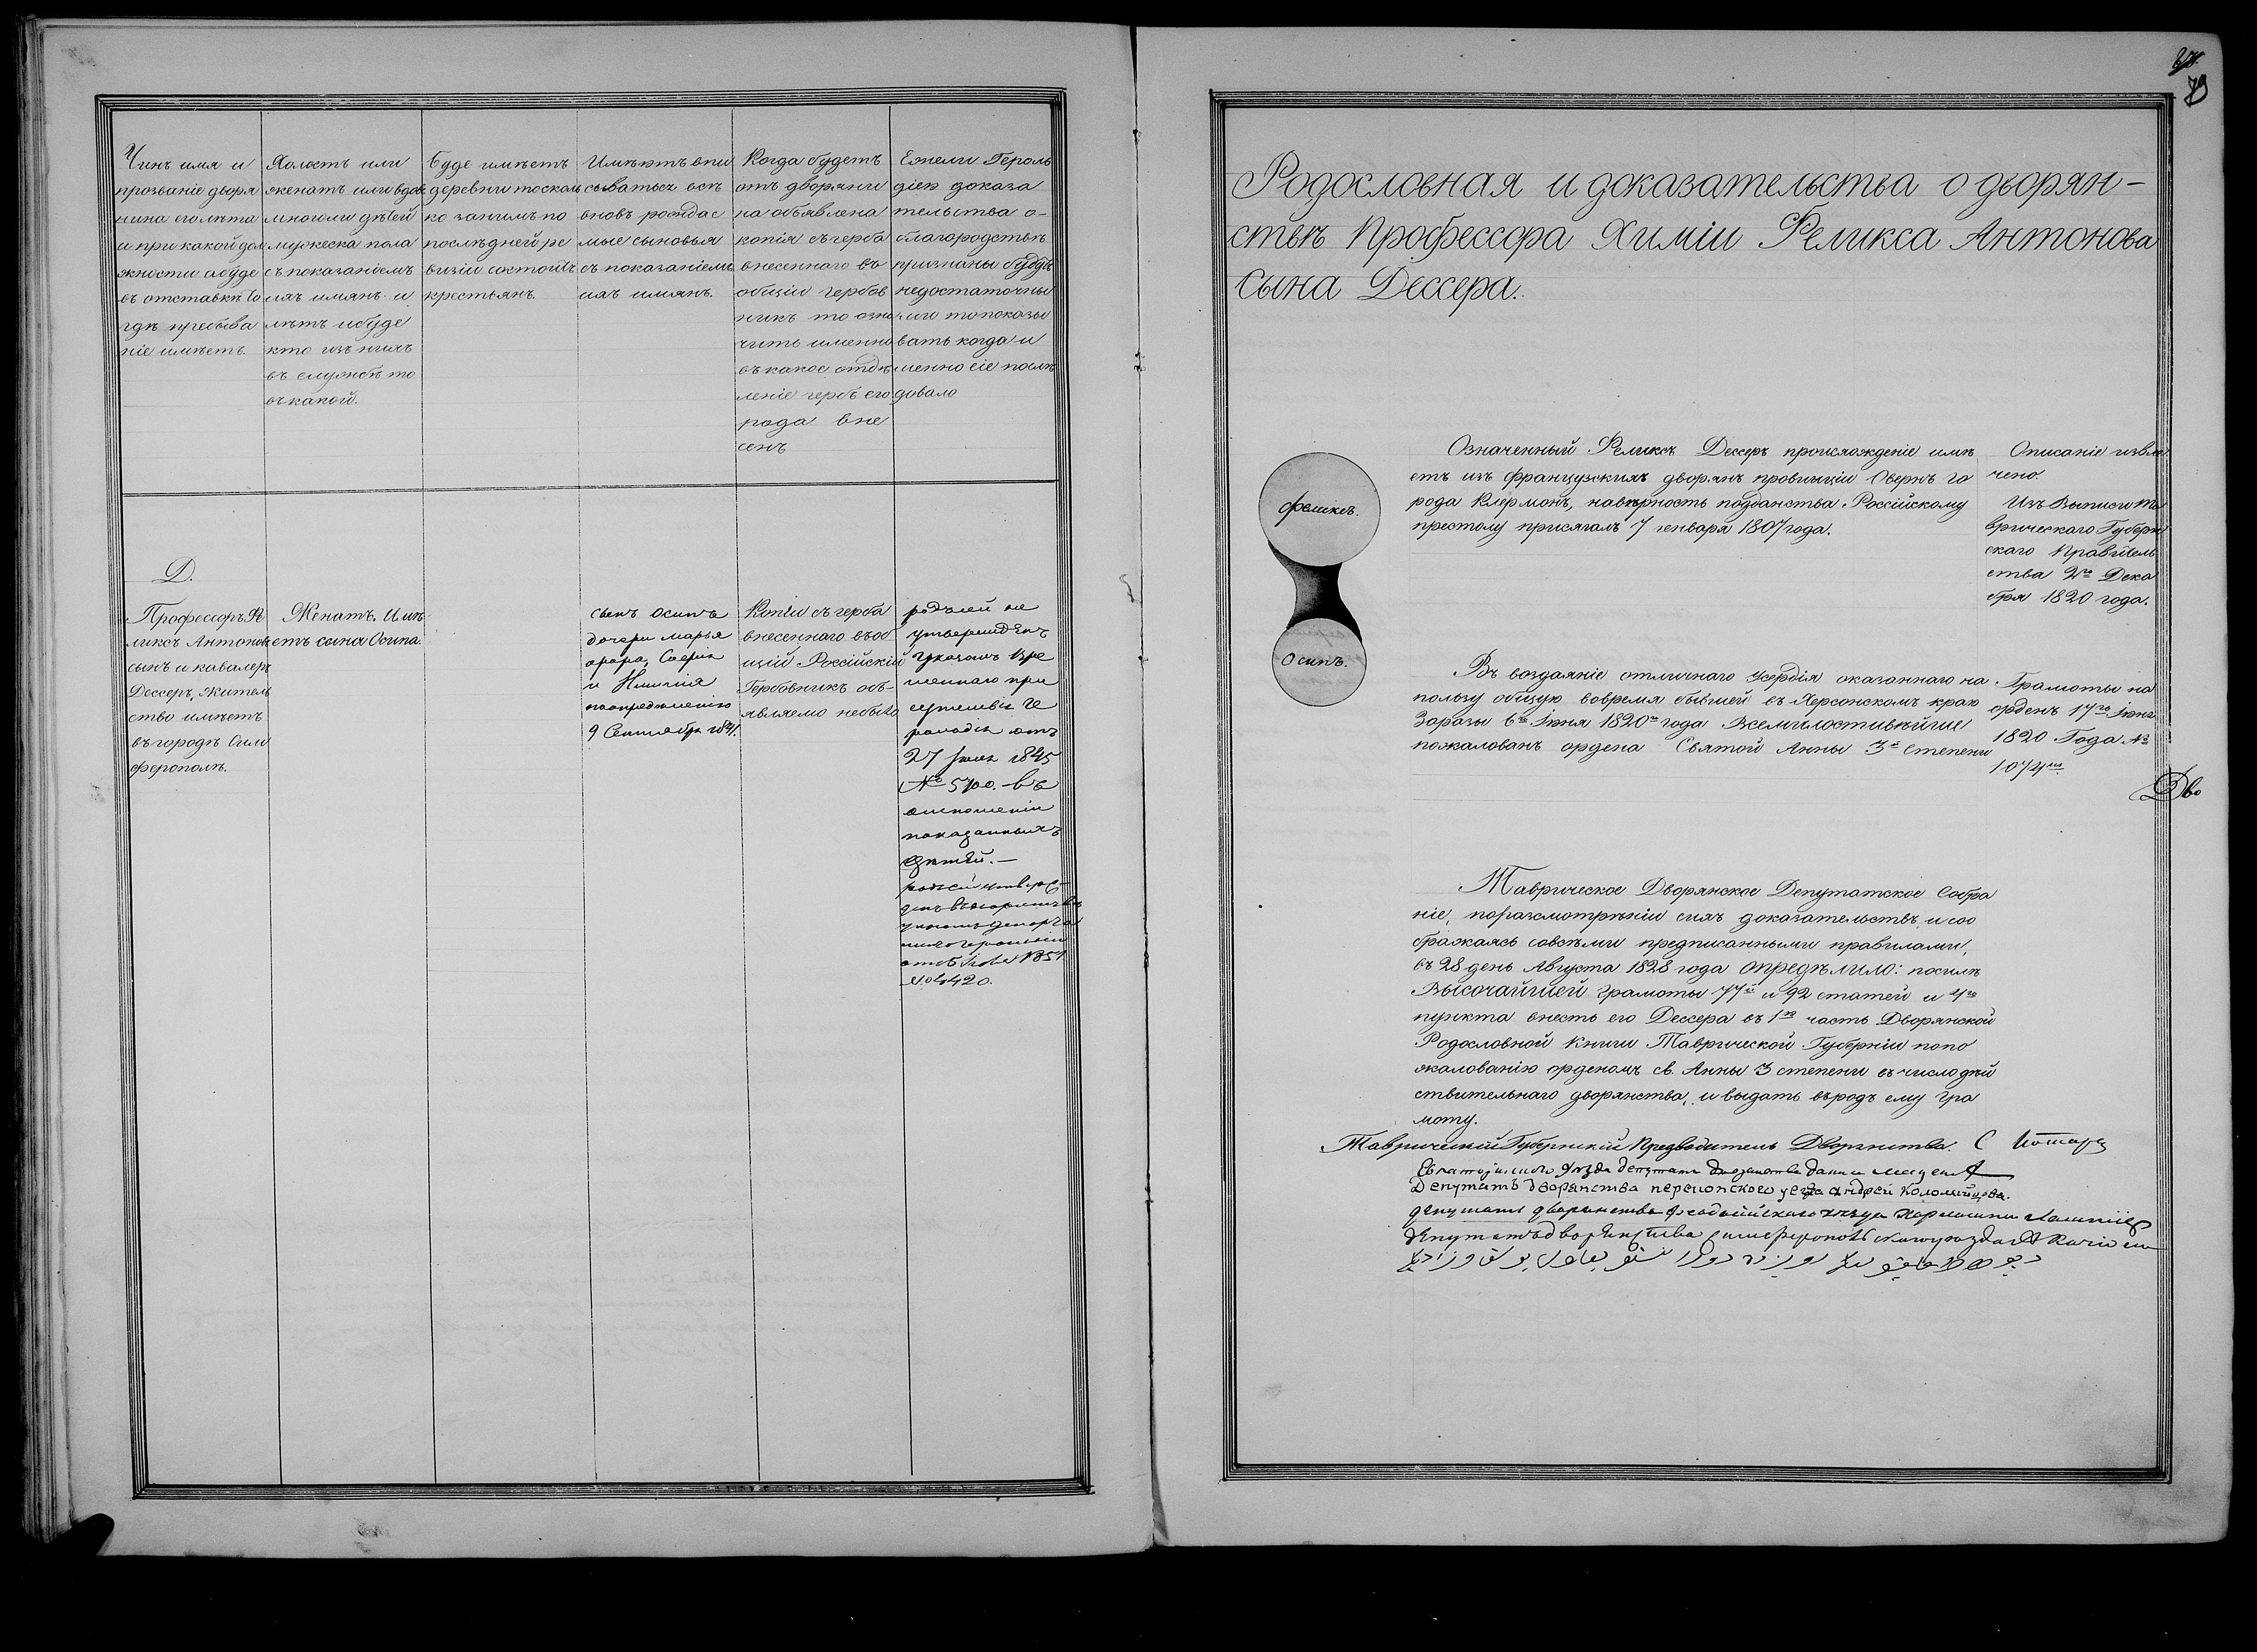 Чинъ имя и
прозваніе дворя
нина его лѣта
и при какой дол
жности а буде
въ отставкѣ то
гдѣ пребыва
ніе имѣетъ.
Холостъ или
женатъ или вдовъ
многоли дѣтей
мужеска пола
съ показаніемъ
ихъ имянъ и
лѣтъ и буде
кто изъ нихъ
въ службѣ то
въ какой.
Буде имѣетъ
деревни то сколь
ко за нимъ по
послѣдней ре
визіи состоитъ
крестьянъ.
Имѣютъ впи
сыватьсъ всѣ
вновь рождае
мые сыновья
съ показаніемъ
ихъ имянъ.
Когда будетъ
отъ дворяни
на объявлена
копія съ герба
внесеннаго въ
общіи гербов
никъ то озна
чить именно
въ какое отдѣ
леніе гербъ его
рода вне
сенъ
Ежели Героль
діею доказа
тельства о-
благородствѣ
признаны будутъ
недостаточны
ми то показы
вать когда и
менно сіе послѣ
довало
Д.
Профессоръ Фе
ликсъ Антоновъ
сынъ и кавалеръ
Дессеръ, житель
ство имѣетъ
въ городѣ Сим
ферополѣ.
Женатъ. Имѣ
етъ сына Осипа.
сынъ Осипъ
дочери Марья
Софія
и
по опредѣленію
9 Сентября 1841.
Копіи съ герба
внесеннаго въ об
щій Россійскій
Гербовникъ объ-
являемо небыло
родъ сей не
утвержденъ
Указомъ Вре
меннаго при
сутствія Ге
рольдіи отъ
27 Іюля 1845
№ 5700. въ
отношеніи
показанныхъ
дѣтей.—
родъ сей утверж-
денъ въ дворянствѣ
указомъ Департа
мента Герольдіи
1851
№ 4420.
Родословная и доказательства о дворян-
ствѣ Профессора Химіи Феликса Антонова
сына Дессера.
Феликсъ.
Осипъ.
Означенный Феликсъ Дессеръ происхожденіе имѣ
етъ изъ французскихъ дворянъ провинціи Овернъ го
рода Клермонъ, навѣрность подданства Россійскому
престолу присягалъ 7 генваря 1807 года.
Описаніе извле
чено.
Изъ Выписи Та
врическаго Губерн
скаго Правитель
ства 2го Дека
бря 1820 года.
Въ воздаяніе отличнаго усердія оказаннаго на
пользу общую вовремя бывшей въ Херсонскомъ краю
Заразы 6го Іюня 1820го года Всемилостивѣйше
пожалованъ ордена Святой Анны 3й степени
Грамоты на
орденъ 17го Іюня
1820 Года №
1074ій
Дво
Таврическое Дворянское Депутатское Собра
ніе, поразсмотрѣніи сихъ доказательствъ, и соо
бражаясь совсѣми предписанными правилами,
въ 28 день Августа 1828 года опредѣлило: посилѣ
Высочайшей грамоты 77й и 92 статей и 4го
пункта внесть его Дессера въ 1ю часть Дворянской
Родословной книги Таврической Губерніи попо
жалованію орденомъ св. Анны 3 степени въ число дѣй
ствительнаго дворянства, и выдать въ родъ ему Гра
моту.
Таврическій Губернскій Предводитель Дворянства.
уѣзда депутатъ дворянства
Депутатъ дворянства перекопскаго уезда Андрей Коломійцовъ.
депутатъ дворянства феодосійскаго уезда
депутатъ дворянства симферопольскаго уезда